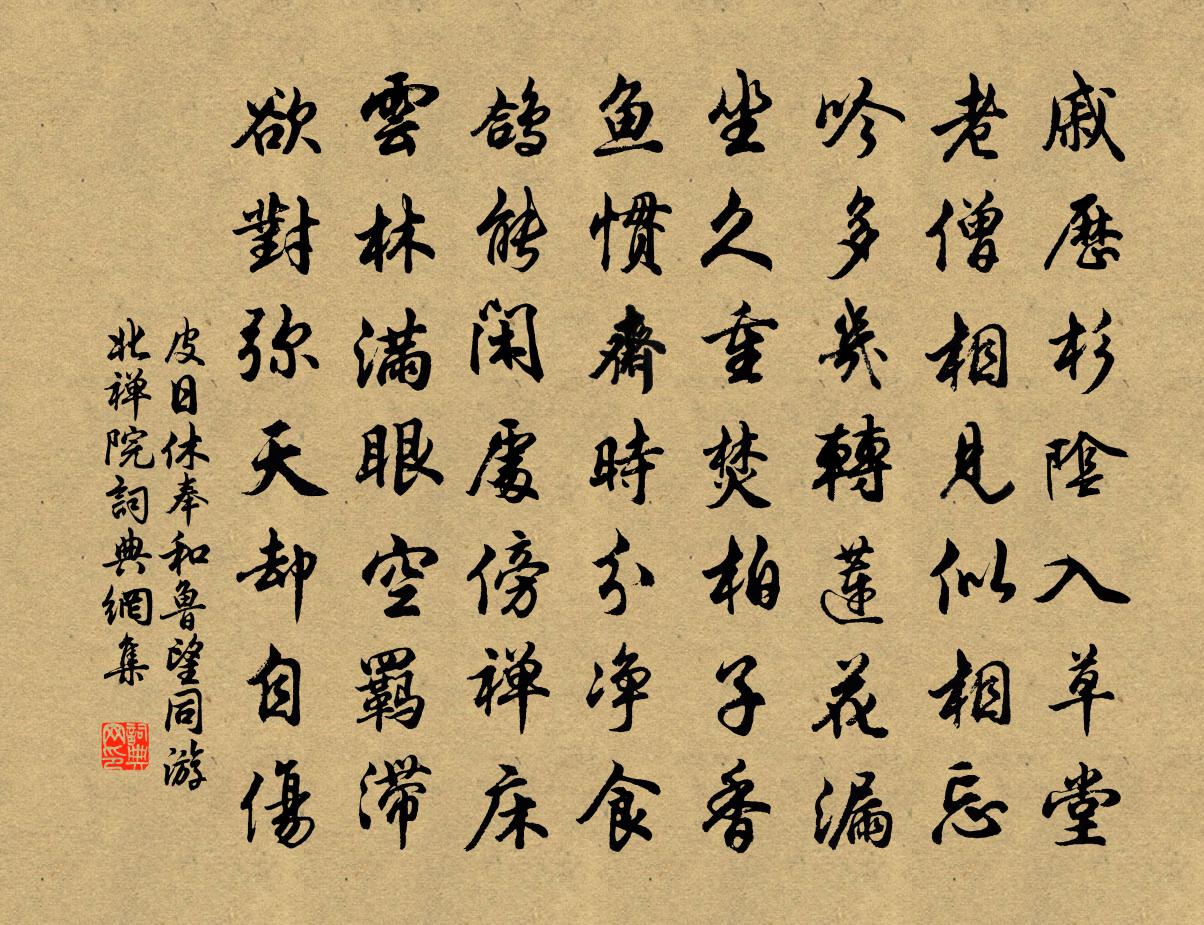 戚歷杉陰入草堂
老僧相見似相忘
吟多幾轉蓮花漏
坐久重焚柏子香
魚慣齋時分净食
鴿能閑處傍禅床
雲林滿眼空羈滯
欲對弥天却自傷
皮日休奉和魯望同游
北禅院詞典網集
詞典
网印